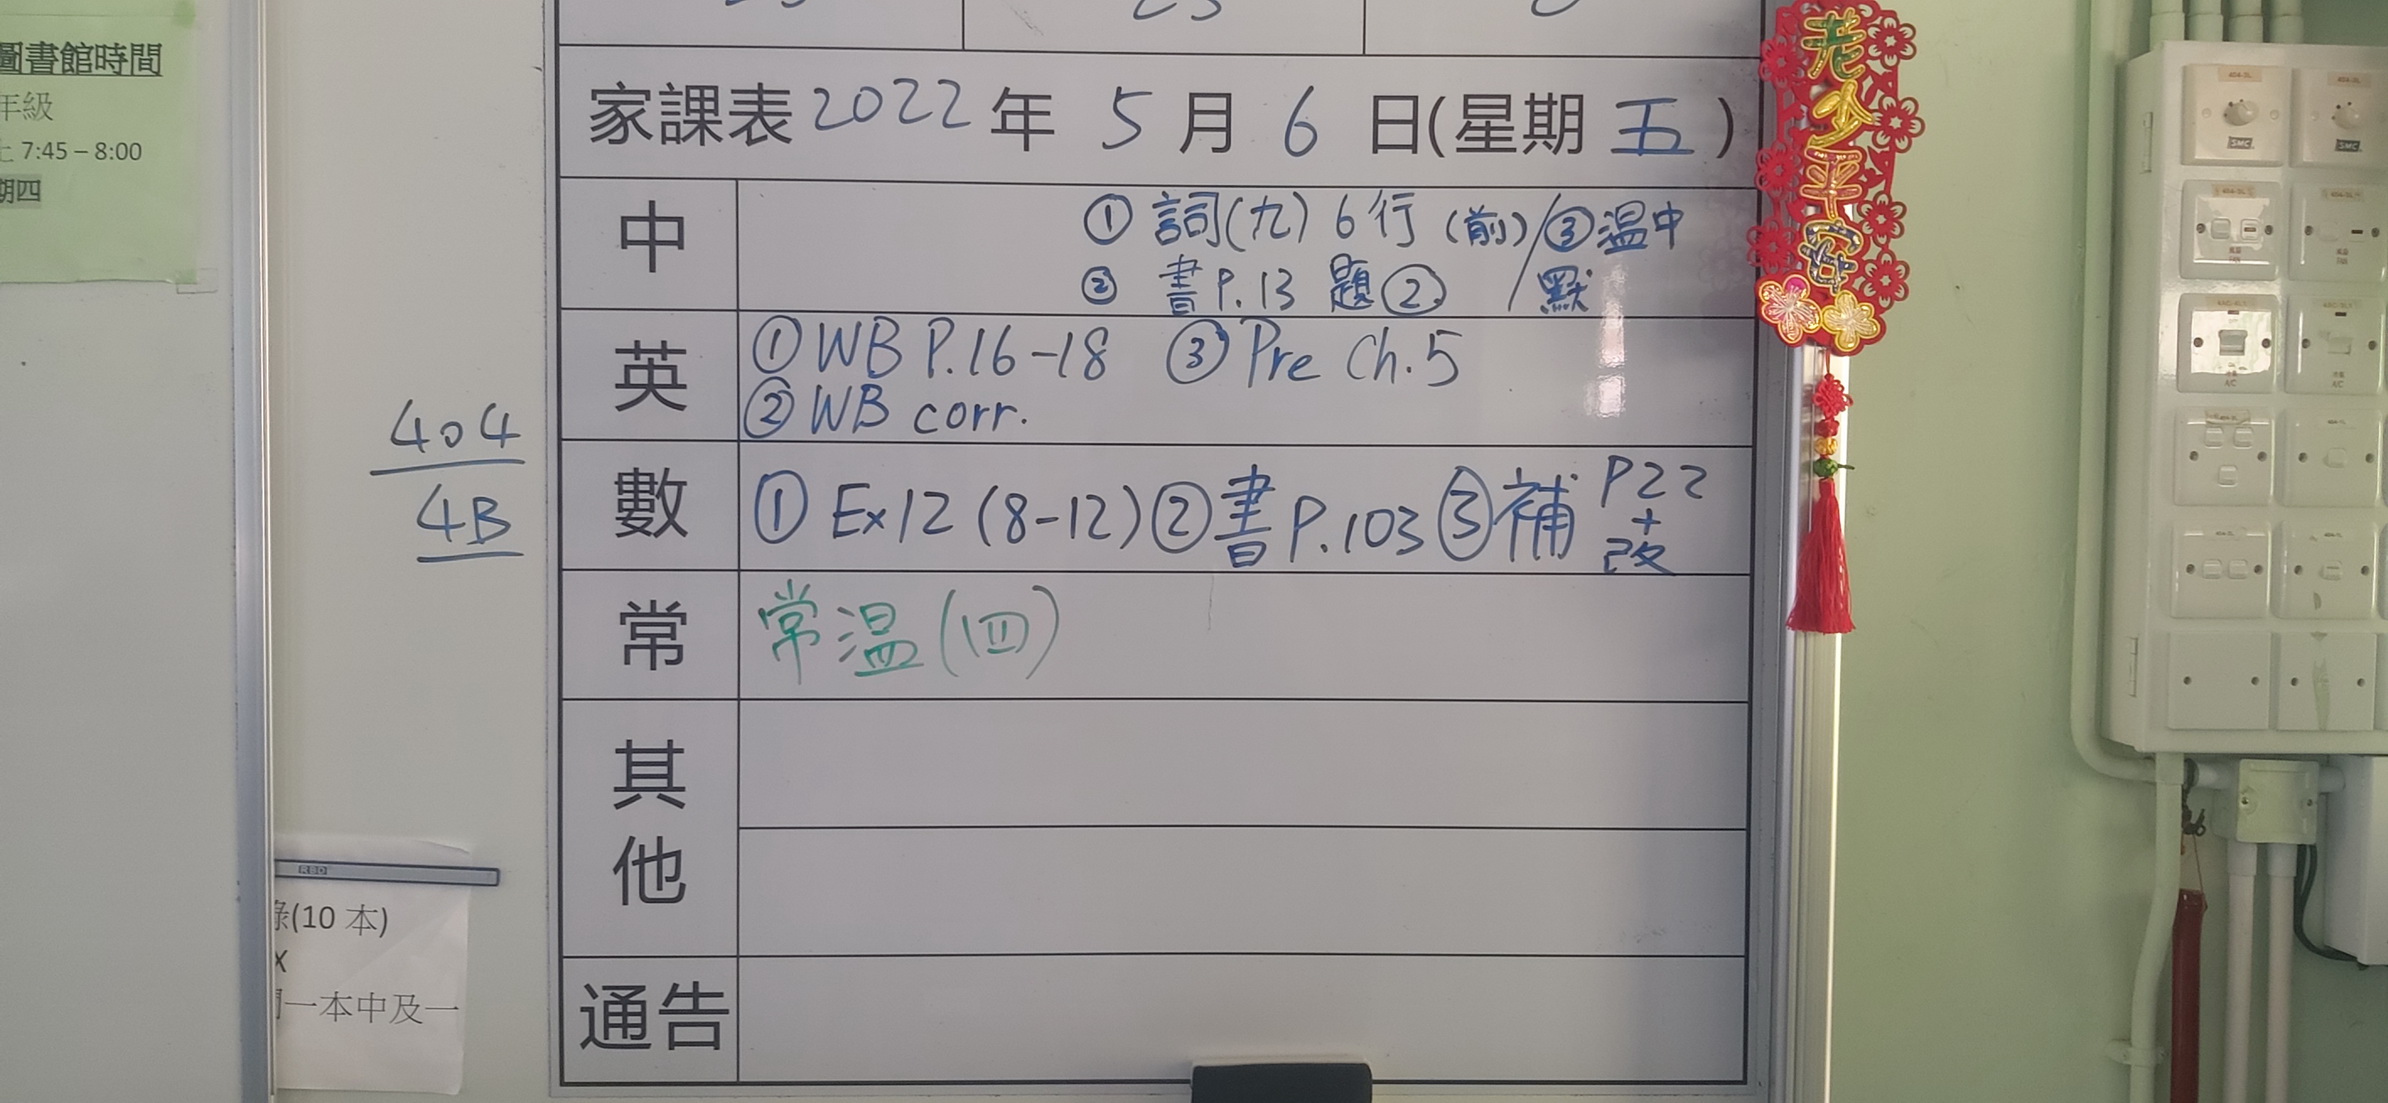 圖書館時間
年級
7:45 – 8:00
期四
404
4B
(10 本)
X
一本中及一
RBD
家課表 2022 年 5 月 6 日(星期 五)
中
① 詞(九) 6行 (前) / ③ 温中
② 書 P.13 題② / 默
英
① WB P.16-18 ③ Pre Ch.5
② WB corr.
數
① Ex12 (8-12) ② 書 P.103 ③ 補 P22
+
改
常
常温(四)
其
他
通告
老少平安
SMC
SMC